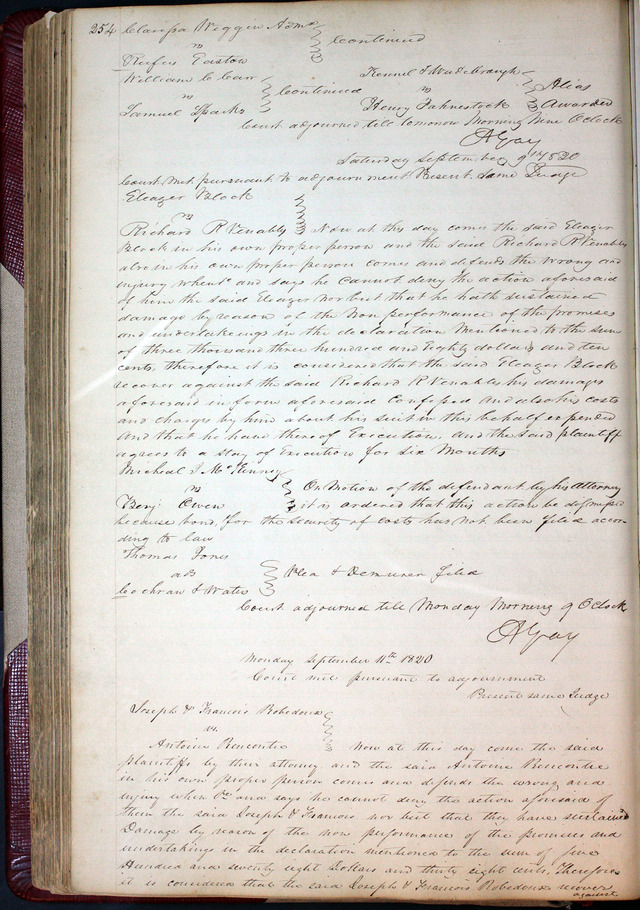 254 Clarissa Wiggin Admx
vs } Continued
Rufus Easton
William C Carr
vs } Continued
Samuel Sparks
vs } Alias Awarded
Henry Fahnestock
Court adjourned till tomorrow Morning Nine OClock
A Gay
Saturday September 9th 1820
Court Met pursuant to adjournment Present Same Judge
Eleazer Block
vs
Richard R Venables } Now at this day comes the said Eleazer
Block in his own proper person and the said Richard R Venables
also in his own proper person comes and defends the wrong and
injury when &c and says he cannot deny the action aforesaid
of him the said Eleazer nor but that he hath sustained
damage by reason of the Non performance of the promises
and undertakeings in the declaration Mentioned to the sum
of three thousand three hundred and Eighty dollars and ten
cents, therefore it is considered that the said Eleazer Block
recover against the said Richard R Venables his damages
aforesaid in form aforesaid Confessed and also his costs
and charges by him about his suit in this behalf expended
And that he have thereof Execution. and the said plaintiff
agrees to a stay of Execution for Six Months
Micheal J McKinney
vs
Benj Owen } On Motion of the defendant by his Attorney
it is ordered that this action be dismissed
because bond for the security of Costs has not been filed accor-
ding to law
Thomas Jones
ads } Plea & Demurrer filed
Cochran & Waters
Court adjourned till Monday Morning 9 OClock
A Gay
Monday September 11th 1820
Court met pursuant to adjournment
Present same Judge
Joseph & Francois Robedoux
vs.
Antoine Rencontre } Now at this day come the said
plaintiffs by their attorney and the said Antoine Rencontre
in his own proper person comes and defends the wrong and
injury when &c and says he cannot deny the action aforesaid of
them the said Joseph & Francois nor but that they have sustained
Damage by reason of the non performance of the promises and
undertakings in the declaration mentioned to the sum of five
Hundred and seventy eight Dollars and thirty eight cents, Therefore
it is considered that the said Joseph & Francois Robedoux recover
against